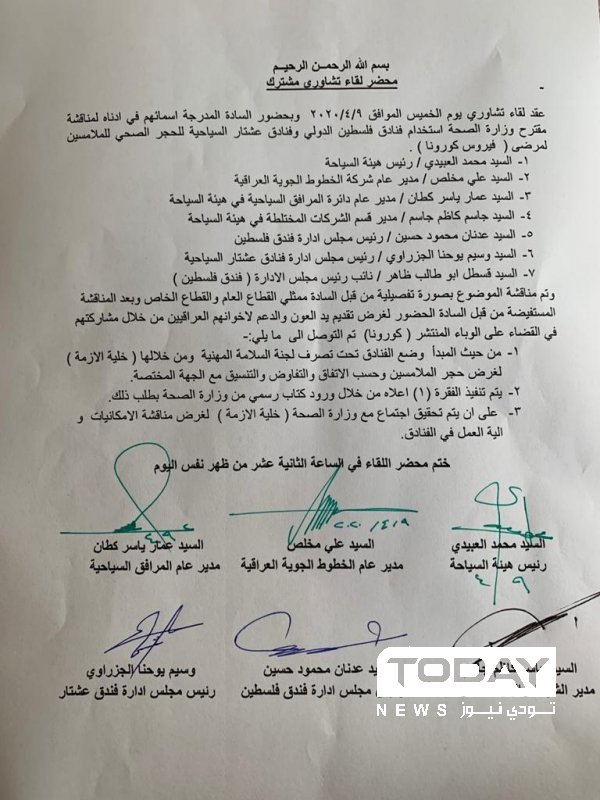 بسم الله الرحمـن الرحيـم
محضر لقاء تشاوري مشترك
عقد لقاء تشاوري يوم الخميس الموافق ٢٠٢٠/٤/٩ وبحضور السادة المدرجة اسمائهم في ادناه لمناقشة
مقترح وزارة الصحة استخدام فنادق فلسطين الدولي وفنادق عشتار السياحية للحجر الصحي للملامسين
لمرضى ( فيروس كورونا ) .
١- السيد محمد العبيدي / رئيس هيئة السياحة
٢- السيد علي مخلص / مدير عام شركة الخطوط الجوية العراقية
٣- السيد عمار ياسر كطان / مدير عام دائرة المرافق السياحية في هيئة السياحة
٤- السيد جاسم كاظم جاسم / مدير قسم الشركات المختلطة في هيئة السياحة
٥- السيد عدنان محمود حسين / رئيس مجلس ادارة فندق فلسطين
٦- السيد وسيم يوحنا الجزراوي / رئيس مجلس ادارة فنادق عشتار السياحية
٧- السيد قسطل ابو طالب ظاهر / نائب رئيس مجلس الادارة ( فندق فلسطين )
وتم مناقشة الموضوع بصورة تفصيلية من قبل السادة ممثلي القطاع العام والقطاع الخاص وبعد المناقشة
المستفيضة من قبل السادة الحضور لغرض تقديم يد العون والدعم لاخوانهم العراقيين من خلال مشاركتهم
في القضاء على الوباء المنتشر ( كورونا) تم التوصل الى ما يلي:-
١- من حيث المبدأ وضع الفنادق تحت تصرف لجنة السلامة المهنية ومن خلالها ( خلية الازمة )
لغرض حجر الملامسين وحسب الاتفاق والتفاوض والتنسيق مع الجهة المختصة.
٢- يتم تنفيذ الفقرة (١) اعلاه من خلال ورود كتاب رسمي من وزارة الصحة بطلب ذلك.
٣- على ان يتم تحقيق اجتماع مع وزارة الصحة ( خلية الازمة ) لغرض مناقشة الامكانيات و
الية العمل في الفنادق.
ختم محضر اللقاء في الساعة الثانية عشر من ظهر نفس اليوم
٤/٩
٢٠٢٠/٤/٩
السيد محمد العبيدي السيد علي مخلص السيد عمار ياسر كطان
رئيس هيئة السياحة مدير عام الخطوط الجوية العراقية مدير عام المرافق السياحية
٤/٩
عدنان محمود حسين وسيم يوحنا الجزراوي
مدير مجلس ادارة فندق فلسطين رئيس مجلس ادارة فندق عشتار
TODAY
NEWS تودي نيوز